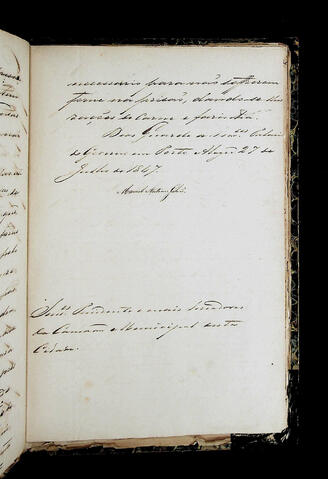 necessario para não soffrerem
fome na prisão, dando-se lhes
rações de carne e farinha.
Deos Guarde a
do Governo em Porto Alegre 27 de
Julho de 1847.
Manoel Antonio Galvão
Senrs. Presidente e mais Vereadores
da Camara Municipal desta
Cidade.